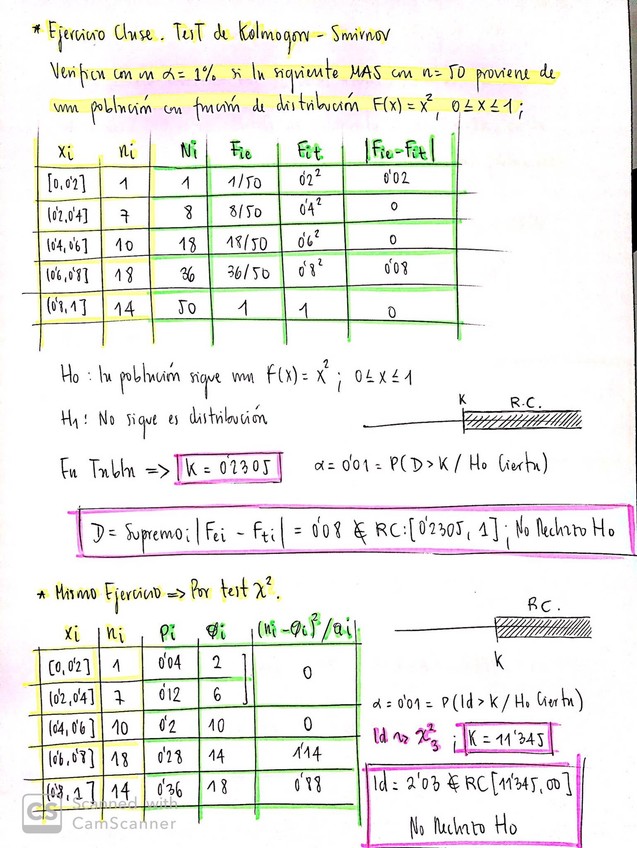 * Ejercicio Clase. Test de Kolmogorov - Smirnov
Verifica con un α = 1% si la siguiente MAS con n = 50 proviene de
una población con función de distribución F(x) = x², 0 ≤ x ≤ 1;
xi ni Ni Fie Fit |Fie - Fit|
[0,0'2] 1 1 1/50 0'2² 0'02
(0'2,0'4] 7 8 8/50 0'4² 0
(0'4,0'6] 10 18 18/50 0'6² 0
(0'6,0'8] 18 36 36/50 0'8² 0'08
(0'8,1] 14 50 1 1 0
Ho : la población sigue una F(x) = x² ; 0 ≤ x ≤ 1
H1 : No sigue es distribución
K R.C.
En Tabla => K = 0'2305 α = 0'01 = P(D > K / Ho Cierta)
D = Supremo i |Fei - Fti| = 0'08 ∉ RC: [0'2305, 1] ; No Rechazo Ho
* Mismo Ejercicio => Por test χ².
RC.
K
xi ni pi θi (ni - θi)²/θi
[0,0'2] 1 0'04 2 0
(0'2,0'4] 7 0'12 6
(0'4,0'6] 10 0'2 10 0
(0'6,0'8] 18 0'28 14 1'14
(0'8,1] 14 0'36 18 0'88
α = 0'01 = P(Id > K / Ho Cierta)
Id ~> χ²₃ ; K = 11'345
Id = 2'03 ∉ RC [11'345, ∞]
No Rechazo Ho
CS Scanned with
CamScanner